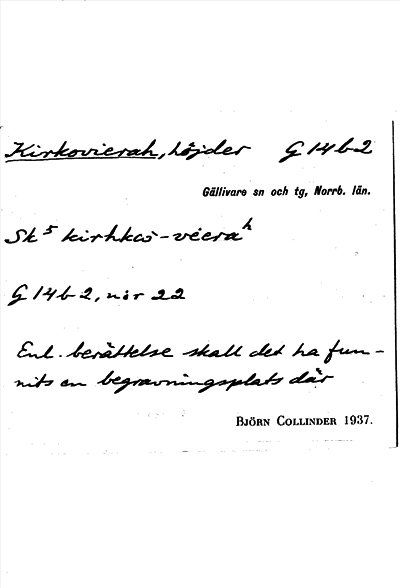 Kirkovierah, höjder G 14 b 2
Gällivare sn och tg, Norrb. län.
Sk⁵ kirhkō-vēeraʰ
G 14 b 2, nör 22
Enl. berättelse skall det ha fun-
nits en begravningsplats där
BJÖRN COLLINDER 1937.